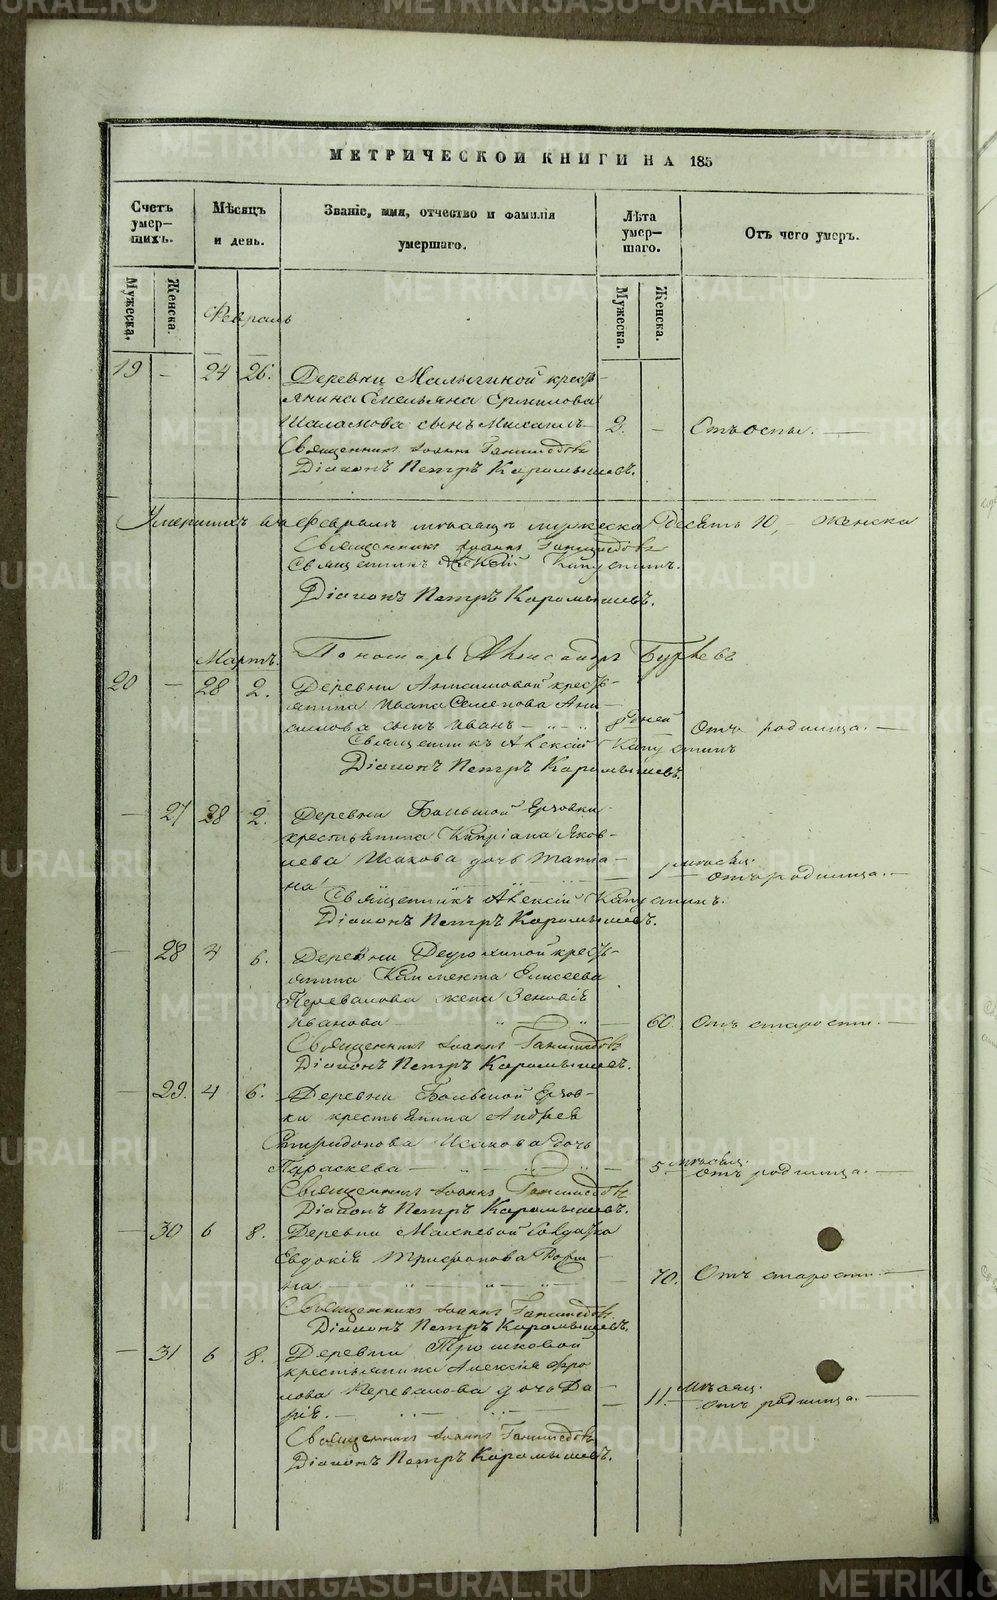 МЕТРИЧЕСКОЙ КНИГИ НА 185
Счетъ умер-шихъ. Мѣсяцъ и день. Званіе, имя, отчество и фамилія умершаго. Лѣта умер-шаго. Отъ чего умеръ.
Мужеска. Женска. Мужеска. Женска.
Февраль
19 — 24 26. Деревни Малыгиной кресть-
янина Емельяна Ермилова
Шаламова сынъ Михаилъ 2. — Отъ оспы.
Священникъ Іоаннъ
Діаконъ Петръ Карамышевъ.
Умершихъ въ Февралѣ мѣсяцѣ мужеска десять 10, — женска
Священникъ Іоаннъ
Священникъ Алексій Капустинъ.
Діаконъ Петръ Карамышевъ.
Пономарь Александръ
Мартъ.
20 — 28 2. Деревни Анисимовой кресть-
янина Ивана Семенова Ани-
симова сынъ Иванъ 8 дней Отъ родимца.
Священникъ Алексій Капустинъ
Діаконъ Петръ Карамышевъ.
— 27 28 2. Деревни Большой Ерзовки
крестьянина Кипріана Яков-
лева Исакова дочь Татіа-
на 1 мѣсяц. Отъ родимца.
Священникъ Алексій Капустинъ.
Діаконъ Петръ Карамышевъ.
— 28 4 6. Деревни кресть-
янина Климента Елисеева
Перевалова жена Зеновія
Иванова 60. Отъ старости.
Священникъ Іоаннъ
Діаконъ Петръ Карамышевъ.
— 29. 4 6. Деревни Большой Ерзов-
ки крестьянина Андрея
Спиридонова Исакова дочь
Параскева 5. мѣсяц. Отъ родимца.
Священникъ Іоаннъ
Діаконъ Петръ Карамышевъ.
— 30 6 8. Деревни Махневой солдатка
Евдокія Трифонова
на 70. Отъ старости.
Священникъ Іоаннъ
Діаконъ Петръ Карамышевъ.
— 31 6 8. Деревни Трошковой
крестьянина Алексія Фро
лова Перевалова дочь Да-
рія. 11. мѣсяц. Отъ родимца.
Священникъ Іоаннъ
Діаконъ Петръ Карамышевъ.
METRIKI.GASO-URAL.RU